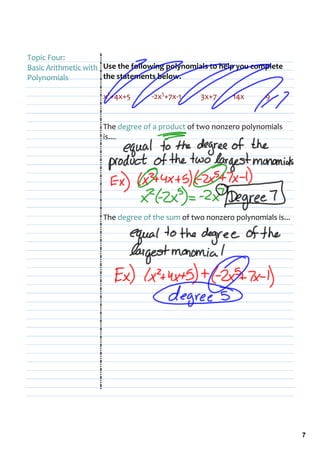 Topic Four:
Basic Arithmetic with
Polynomials
Use the following polynomials to help you complete
the statements below.
x²+4x+5 -2x⁵+7x-1 3x+7 14x 9
The degree of a product of two nonzero polynomials
is....
equal to the degree of the
product of the two largest monomials
Ex) (x²+4x+5)(-2x⁵+7x-1)
x²(-2x⁵)=-2x⁷ Degree 7
The degree of the sum of two nonzero polynomials is...
equal to the degree of the
largest monomial
Ex) (x²+4x+5)+(-2x⁵+7x-1)
degree 5
7